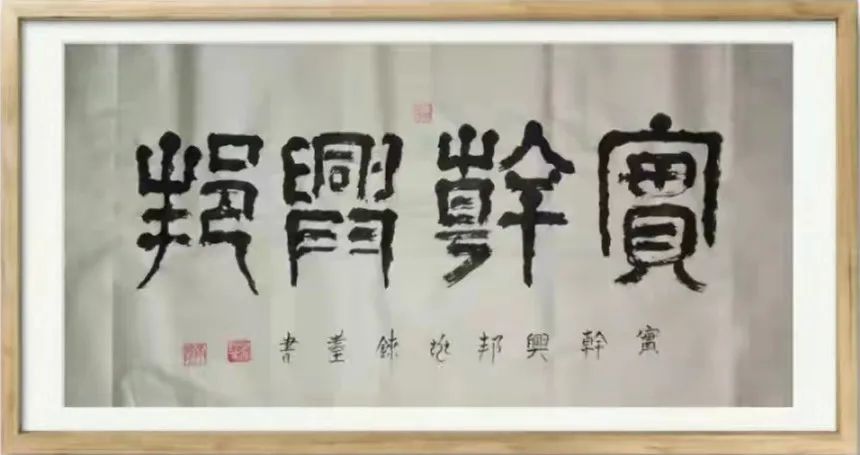 實幹興邦
實幹興邦
臺書